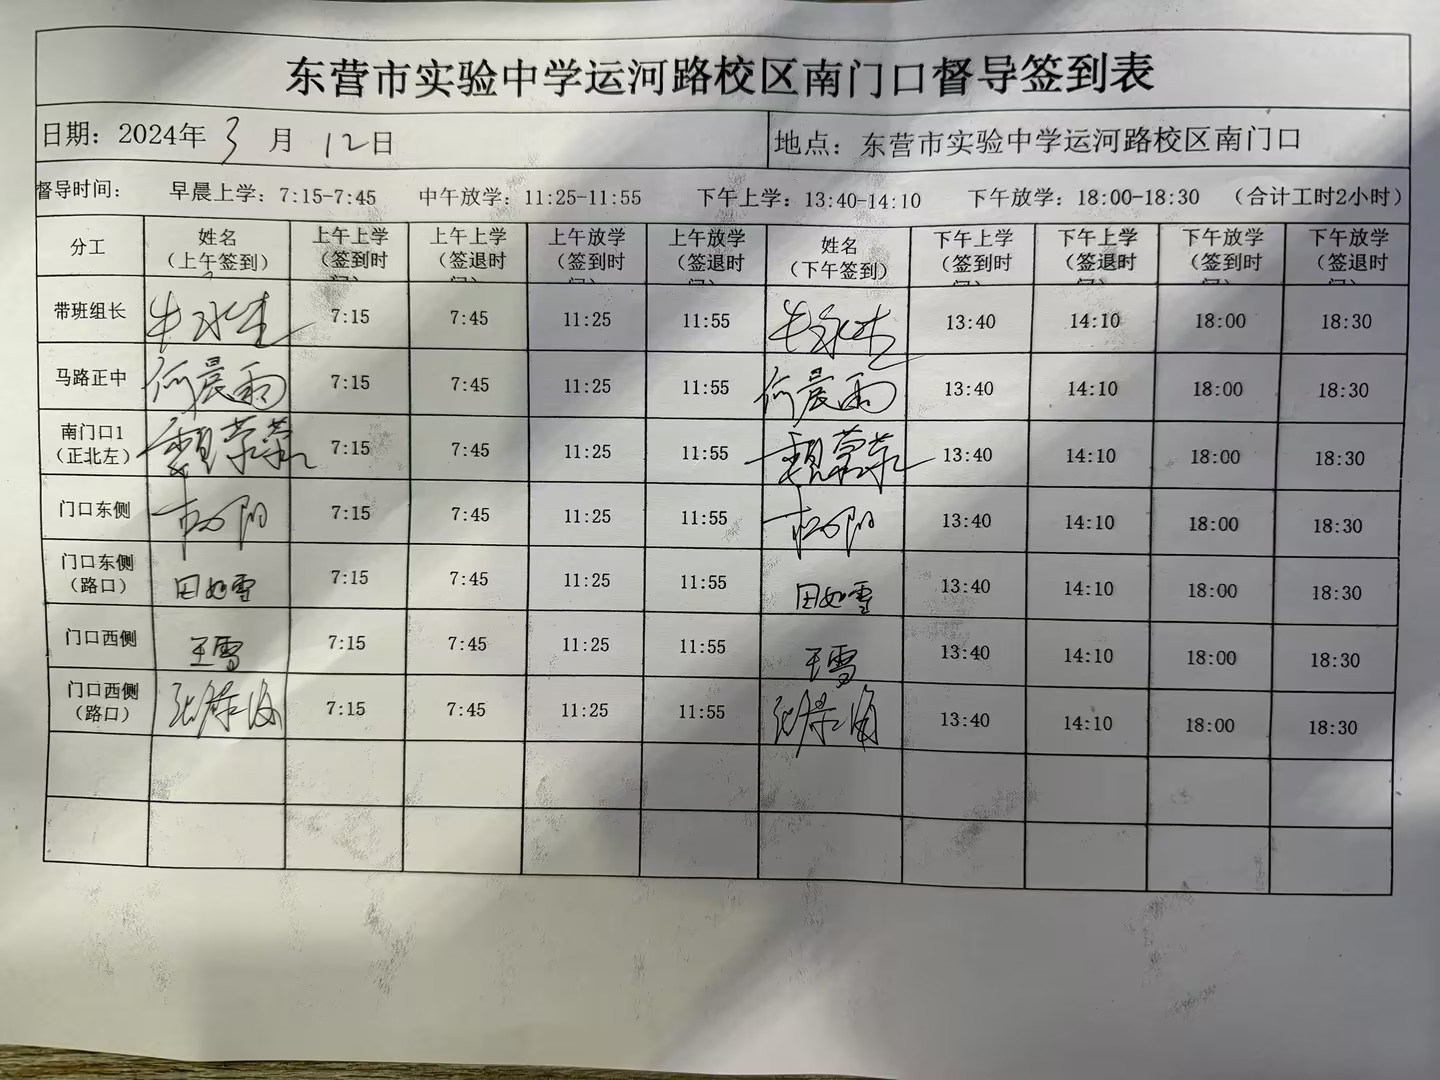 东营市实验中学运河路校区南门口督导签到表
日期：2024年 3 月 12日 地点：东营市实验中学运河路校区南门口
督导时间： 早晨上学：7:15-7:45 中午放学：11:25-11:55 下午上学：13:40-14:10 下午放学：18:00-18:30 （合计工时2小时）
分工 姓名 上午上学 上午上学 上午放学 上午放学 姓名 下午上学 下午上学 下午放学 下午放学
（上午签到） （签到时 （签退时 （签到时 （签退时 （下午签到） （签到时 （签退时 （签到时 （签退时
带班组长 牛永杰 7:15 7:45 11:25 11:55 牛永杰 13:40 14:10 18:00 18:30
马路正中 何晨雨 7:15 7:45 11:25 11:55 何晨雨 13:40 14:10 18:00 18:30
南门口1
（正北左） 7:15 7:45 11:25 11:55 13:40 14:10 18:00 18:30
门口东侧 7:15 7:45 11:25 11:55 13:40 14:10 18:00 18:30
门口东侧
（路口） 田如雪 7:15 7:45 11:25 11:55 田如雪 13:40 14:10 18:00 18:30
门口西侧 王雪 7:15 7:45 11:25 11:55 王雪 13:40 14:10 18:00 18:30
门口西侧
（路口） 7:15 7:45 11:25 11:55 13:40 14:10 18:00 18:30